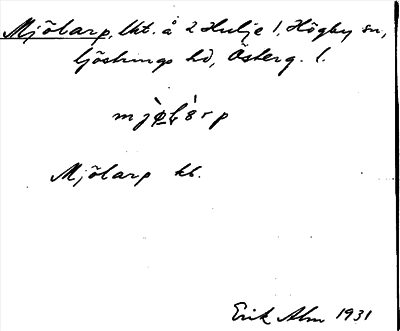 Mjölarp, lht. å 2 Hulje l, Högby sn,
Göstrings hd, Österg. l.
Mjölarp kb.
Erik Alm 1931